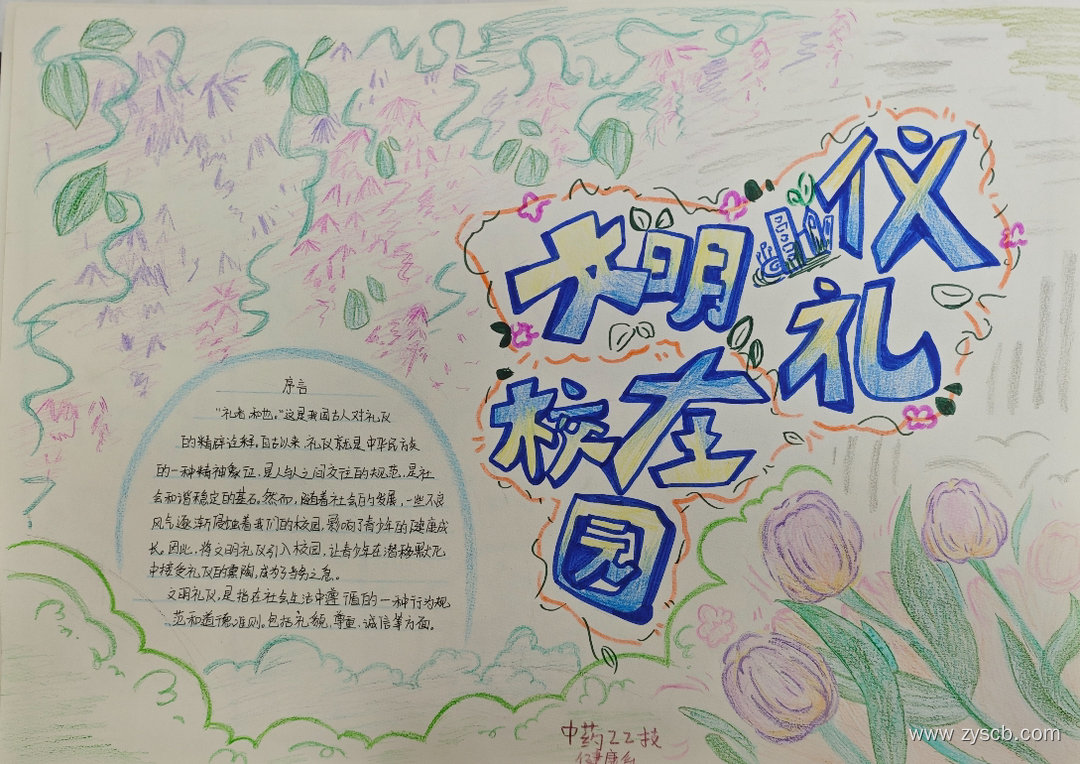 文明
仪
礼
在
校
园
序言
"礼者,和也。"这是我国古人对礼仪
的精辟诠释。自古以来,礼仪就是中华民族
的一种精神象征,是人与人之间交往的规范,是社
会和谐稳定的基石。然而,随着社会的发展,一些不良
风气逐渐侵蚀着我们的校园,影响了青少年的健康成
长。因此,将文明礼仪引入校园,让青少年在潜移默化
中接受礼仪的熏陶,成为了当务之急。
文明礼仪,是指在社会生活中遵循的一种行为规
范和道德准则。包括礼貌、尊重、诚信等方面。
中药22技
www.zyscb.com